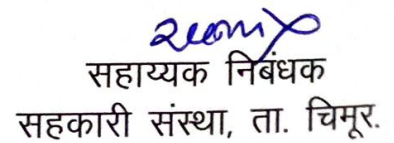 सहाय्यक निबंधक
सहकारी संस्था, ता. चिमूर.